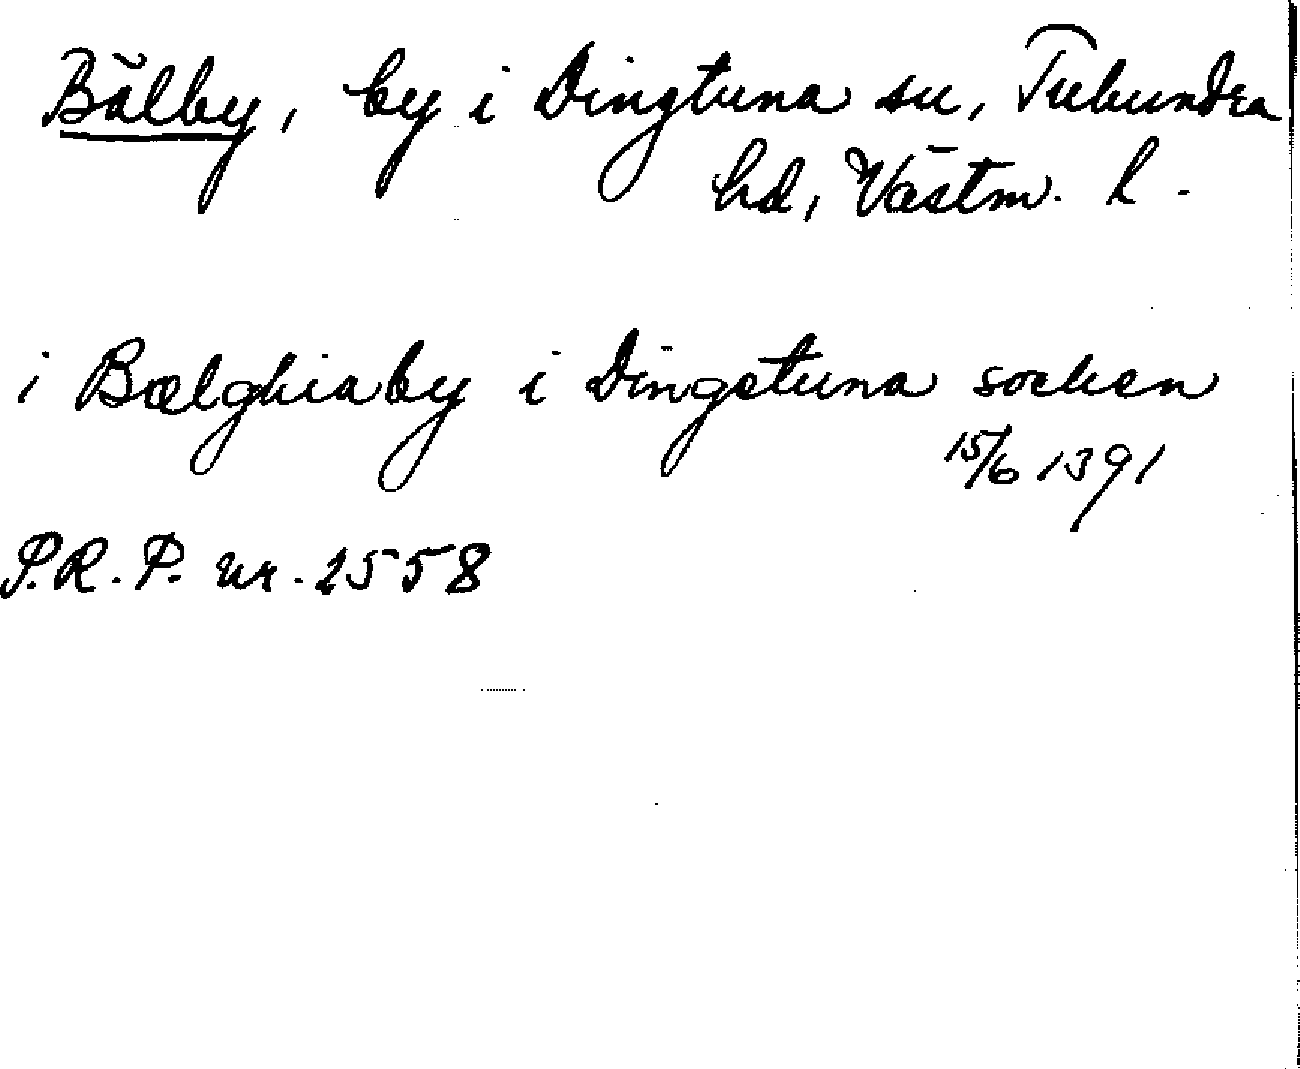 Bälby, by i Dingtuna sn, Tuhundra
hd, Västm. l.
i Bælghiaby i Dingstuna socken
15/6 1391
P.R.P. nr. 2558